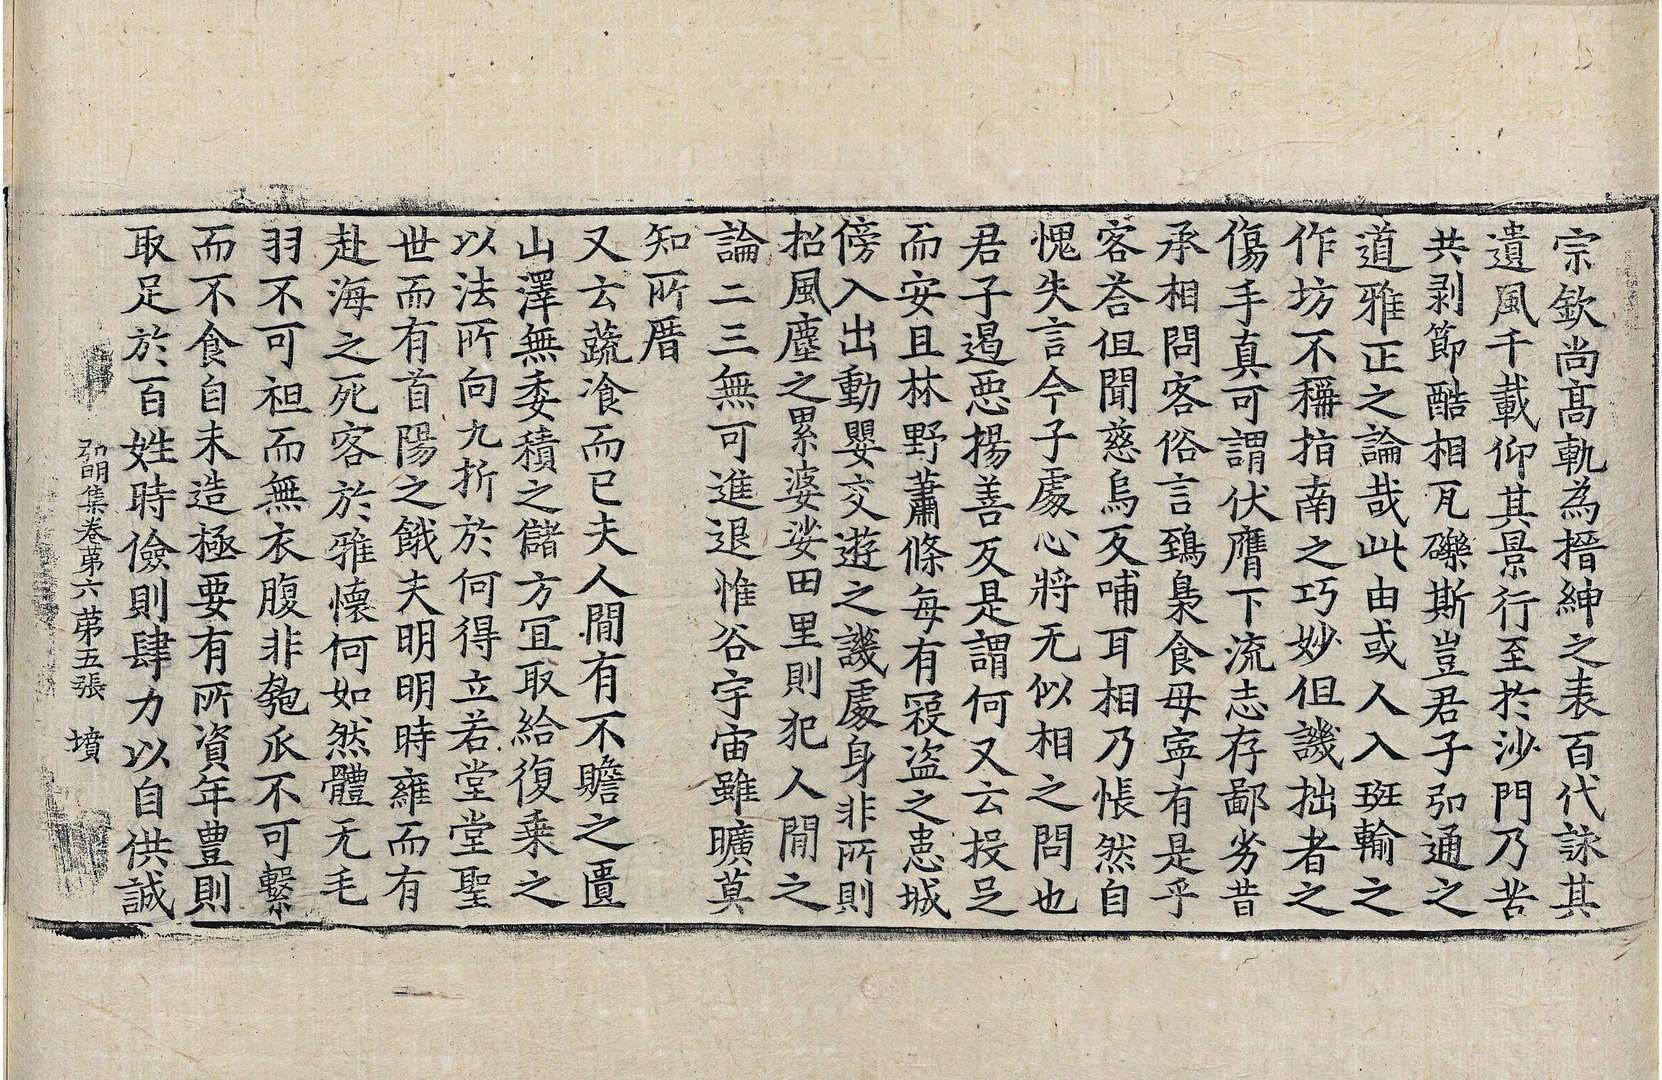 宗欽尚髙軌為搢紳之表百代詠其
遺風千載仰其景行至於沙門乃苦
共剥節酷相瓦礫斯豈君子弘通之
道雅正之論哉此由或人入班輸之
作坊不稱指南之巧妙但譏拙者之
傷手真可謂伏膺下流志存鄙劣昔
承相問客俗言鵄梟食母寜有是乎
客荅伹聞慈烏反哺耳相乃悵然自
愧失言今子處心將无似相之問也
君子遏惡揚善反是謂何又云投足
而安且林野蕭條每有寇盗之患城
傍入出動嬰交遊之譏處身非所則
招風塵之累婆娑田里則犯人間之
論二三無可進退惟谷宇宙雖曠莫
知所厝
又云蔬飡而已夫人間有不贍之匱
山澤無委積之儲方冝取給復乗之
以法所向九折於何得立若堂堂聖
世而有首陽之餓夫明明時雍而有
赴海之死客於雅懷何如然體无毛
羽不可袒而無衣腹非匏瓜不可繫
而不食自未造極要有所資年豊則
取足於百姓時儉則肆力以自供誠
弘明集卷苐六　苐五張　墳